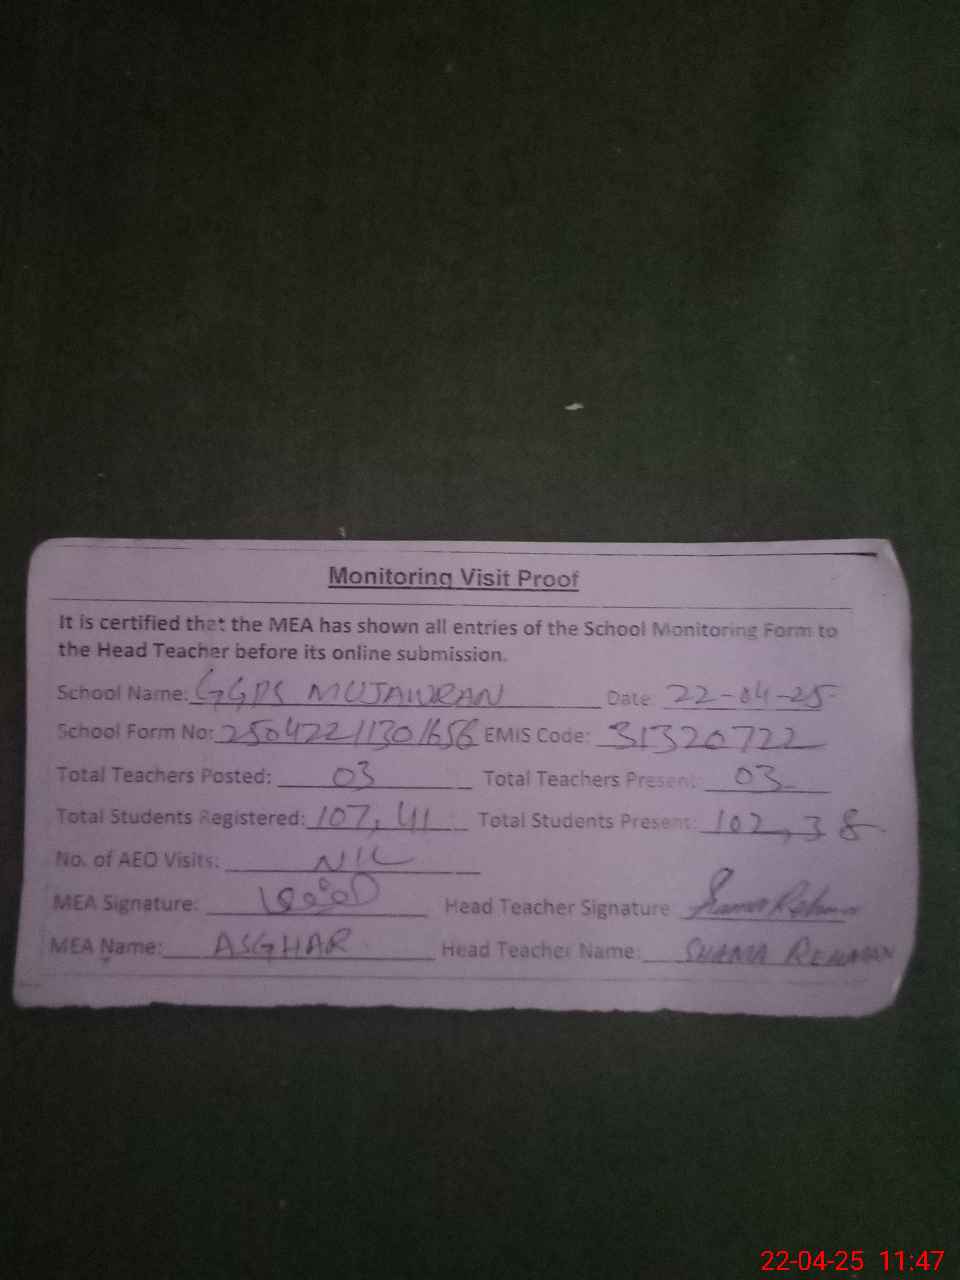 Monitoring Visit Proof
It is certified that the MEA has shown all entries of the School Monitoring Form to
the Head Teacher before its online submission.
School Name: GGPS MUJAWRAN Date: 22-04-25
School Form No: 25042211301656 EMIS Code: 31320722
Total Teachers Posted: 03 Total Teachers Present: 03
Total Students Registered: 107, 41 Total Students Present: 102, 38
No. of AEO Visits: NIL
MEA Signature: Head Teacher Signature Shama Rehman
MEA Name: ASGHAR Head Teacher Name: SHAMA REHMAN
22-04-25 11:47